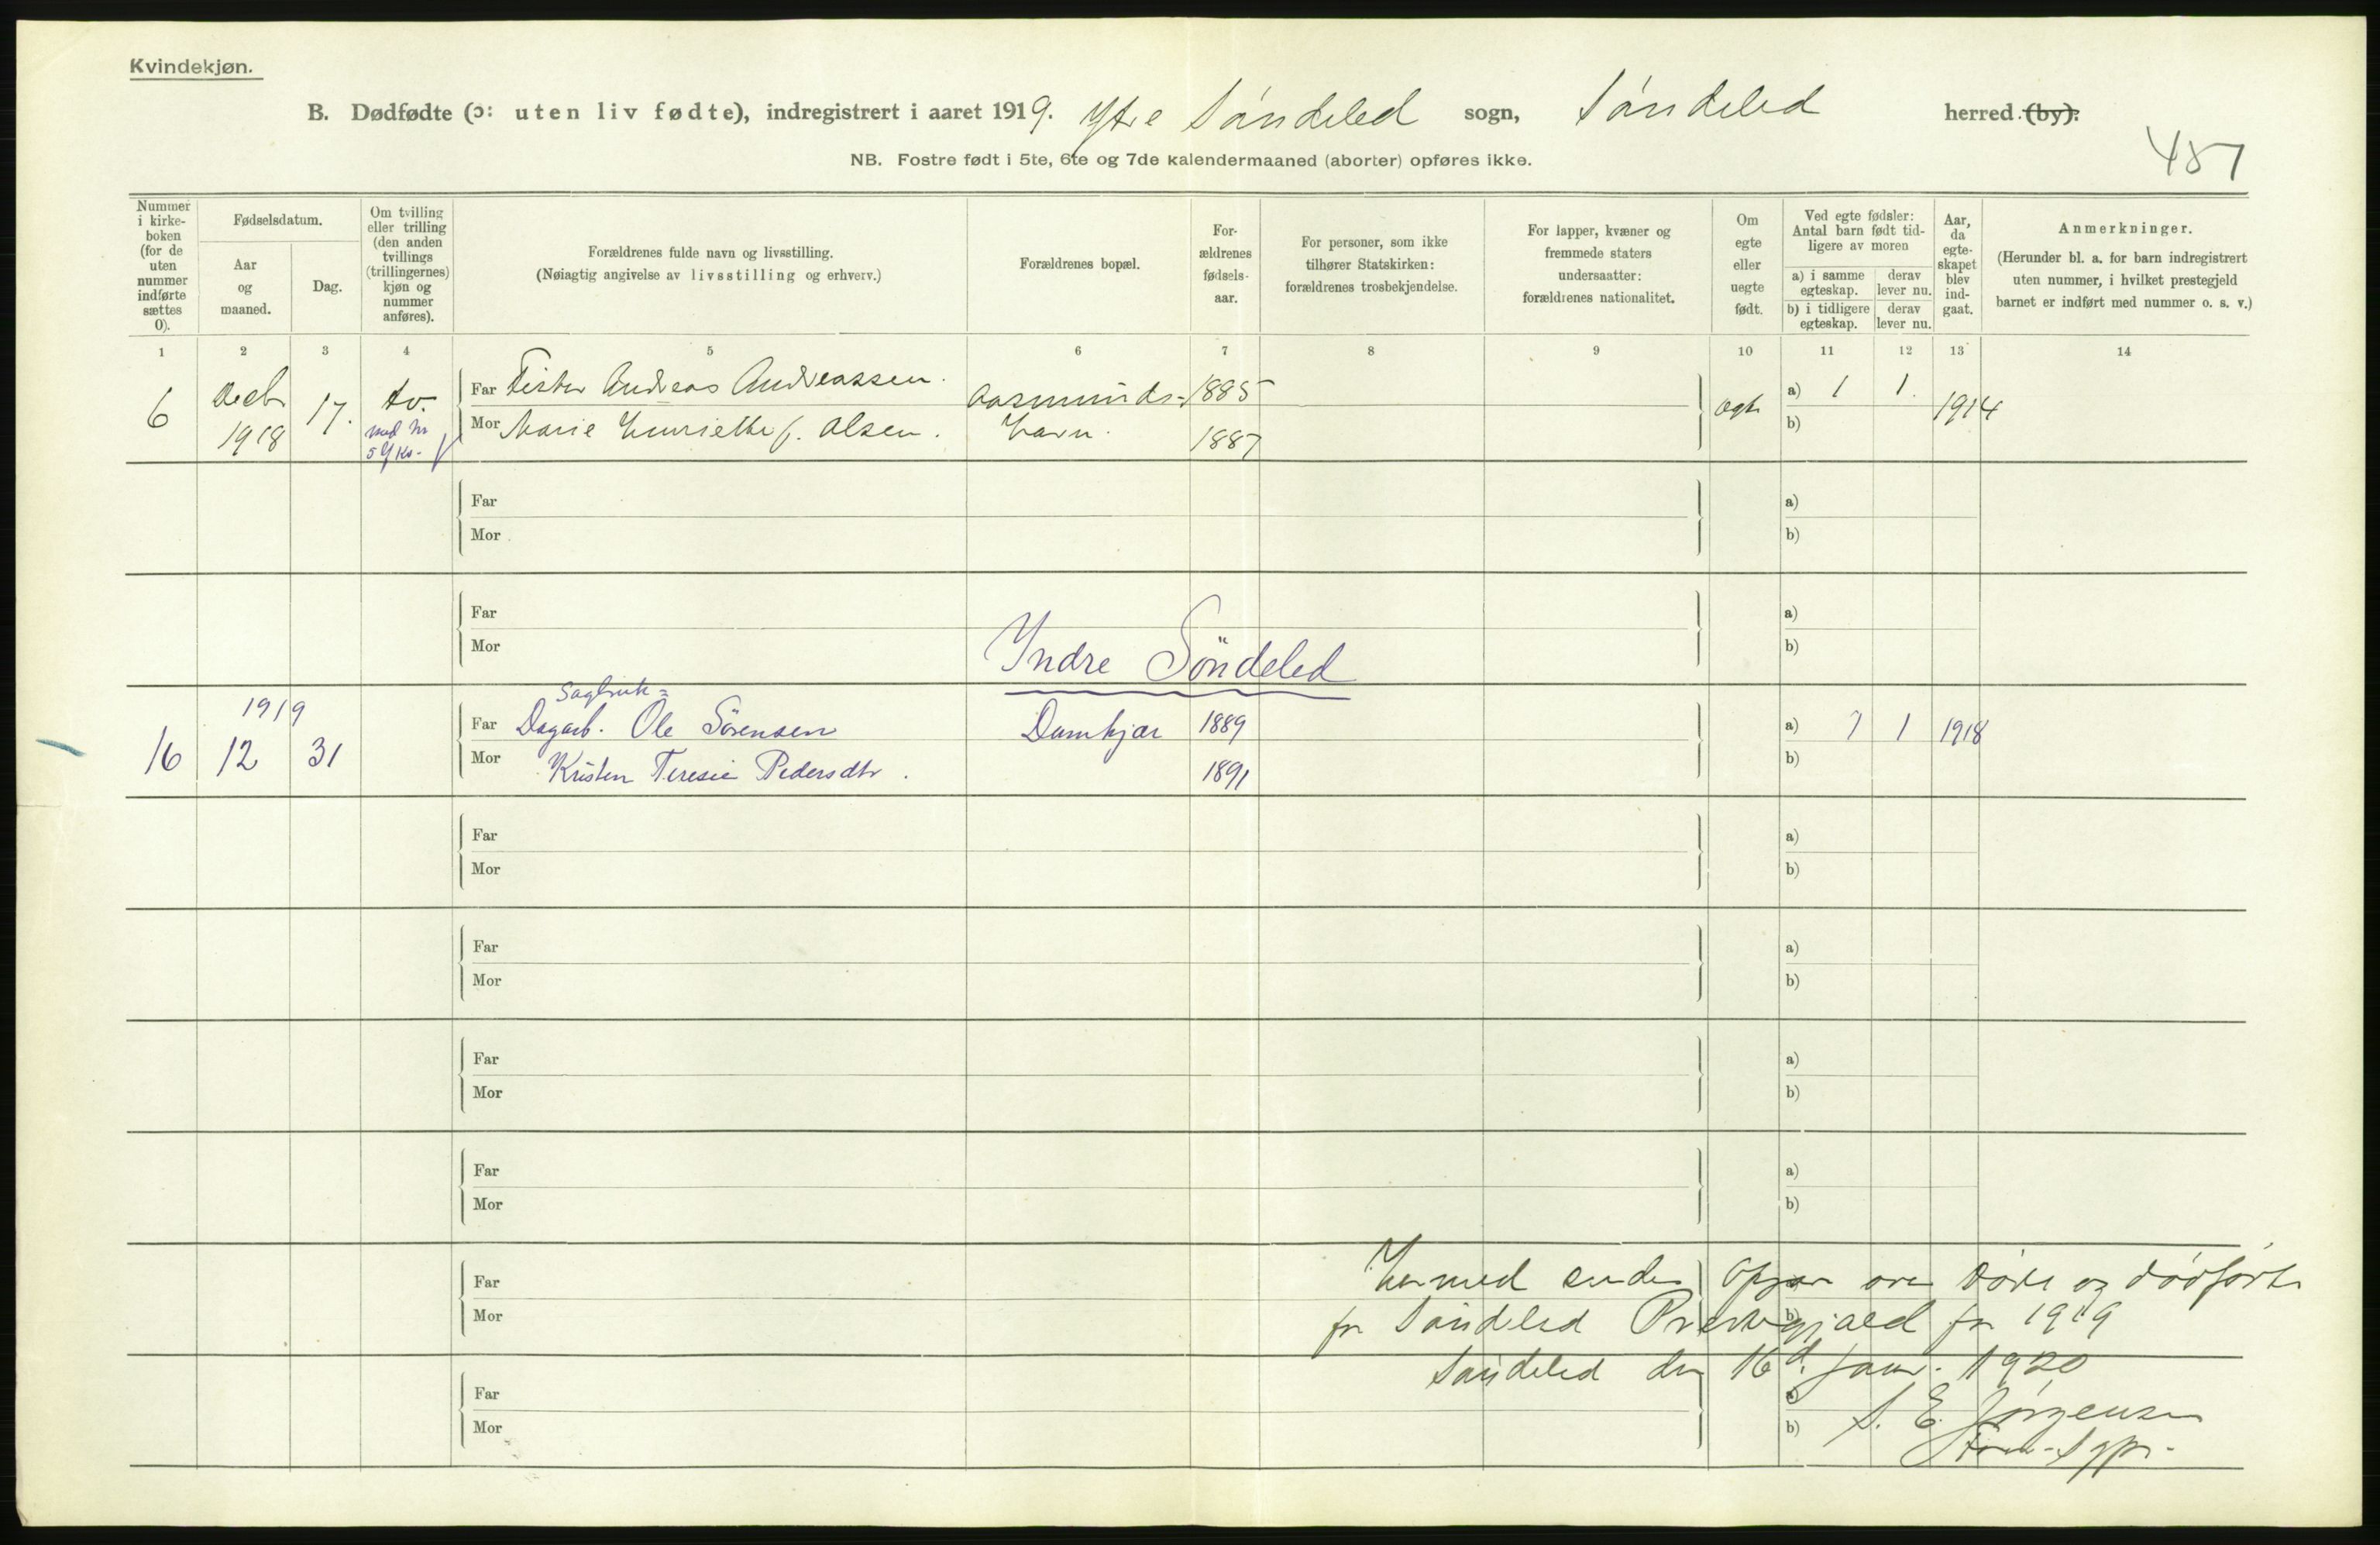 Kvindekjøn.
B. Dødfødte (ɔ: uten liv fødte), indregistrert i aaret 1919. Ytre Söndeled sogn, Söndeled herred (by).
NB. Fostre født i 5te, 6te og 7de kalendermaaned (aborter) opføres ikke.
487
Nummer i kirke-boken (for de uten nummer indførte sættes 0).
Fødselsdatum.
Aar og maaned.
Dag.
Om tvilling eller trilling (den anden tvillings (trillingernes) kjøn og nummer anføres).
Forældrenes fulde navn og livsstilling.
(Nøiagtig angivelse av livsstilling og erhverv.)
Forældrenes bopæl.
For-ældrenes fødsels-aar.
For personer, som ikke tilhører Statskirken: forældrenes trosbekjendelse.
For lapper, kvæner og fremmede staters undersaatter: forældrenes nationalitet.
Om egte eller uegte født.
Ved egte fødsler: Antal barn født tid-ligere av moren
a) i samme egteskap. derav lever nu.
b) i tidligere egteskap. derav lever nu.
Aar, da egte-skapet blev ind-gaat.
Anmerkninger.
(Herunder bl. a. for barn indregistrert uten nummer, i hvilket prestegjeld barnet er indført med nummer o. s. v.)
1 2 3 4 5 6 7 8 9 10 11 12 13 14
6 Decb 1918 17. tv. med nr 5
Far Fisker Andreas Andreassen. Aasmunds- 1885 a) 1 1. 1914
Mor Marie Henriette f. Olsen. havn. 1887 egte b)
Far a)
Mor b)
Far a)
Mor b)
Yndre Söndeled
1919
Sagbruk=
16 12 31 Far Dagarb. Ole Sörensen Damkjær 1889 a) 1 1 1918
Mor Kristen Teresie Pedersdtr. 1891 b)
Far a)
Mor b)
Far a)
Mor b)
Far a)
Mor b)
Far a)
Mor b)
Far
Mor b)
Hermed sendes Opgav over døde og dødfødte
for Söndeled Prestegjæld for 1919
Söndeled den 16d. Janr. 1920
Far a)
Mor b)
S. E. Jörgensen